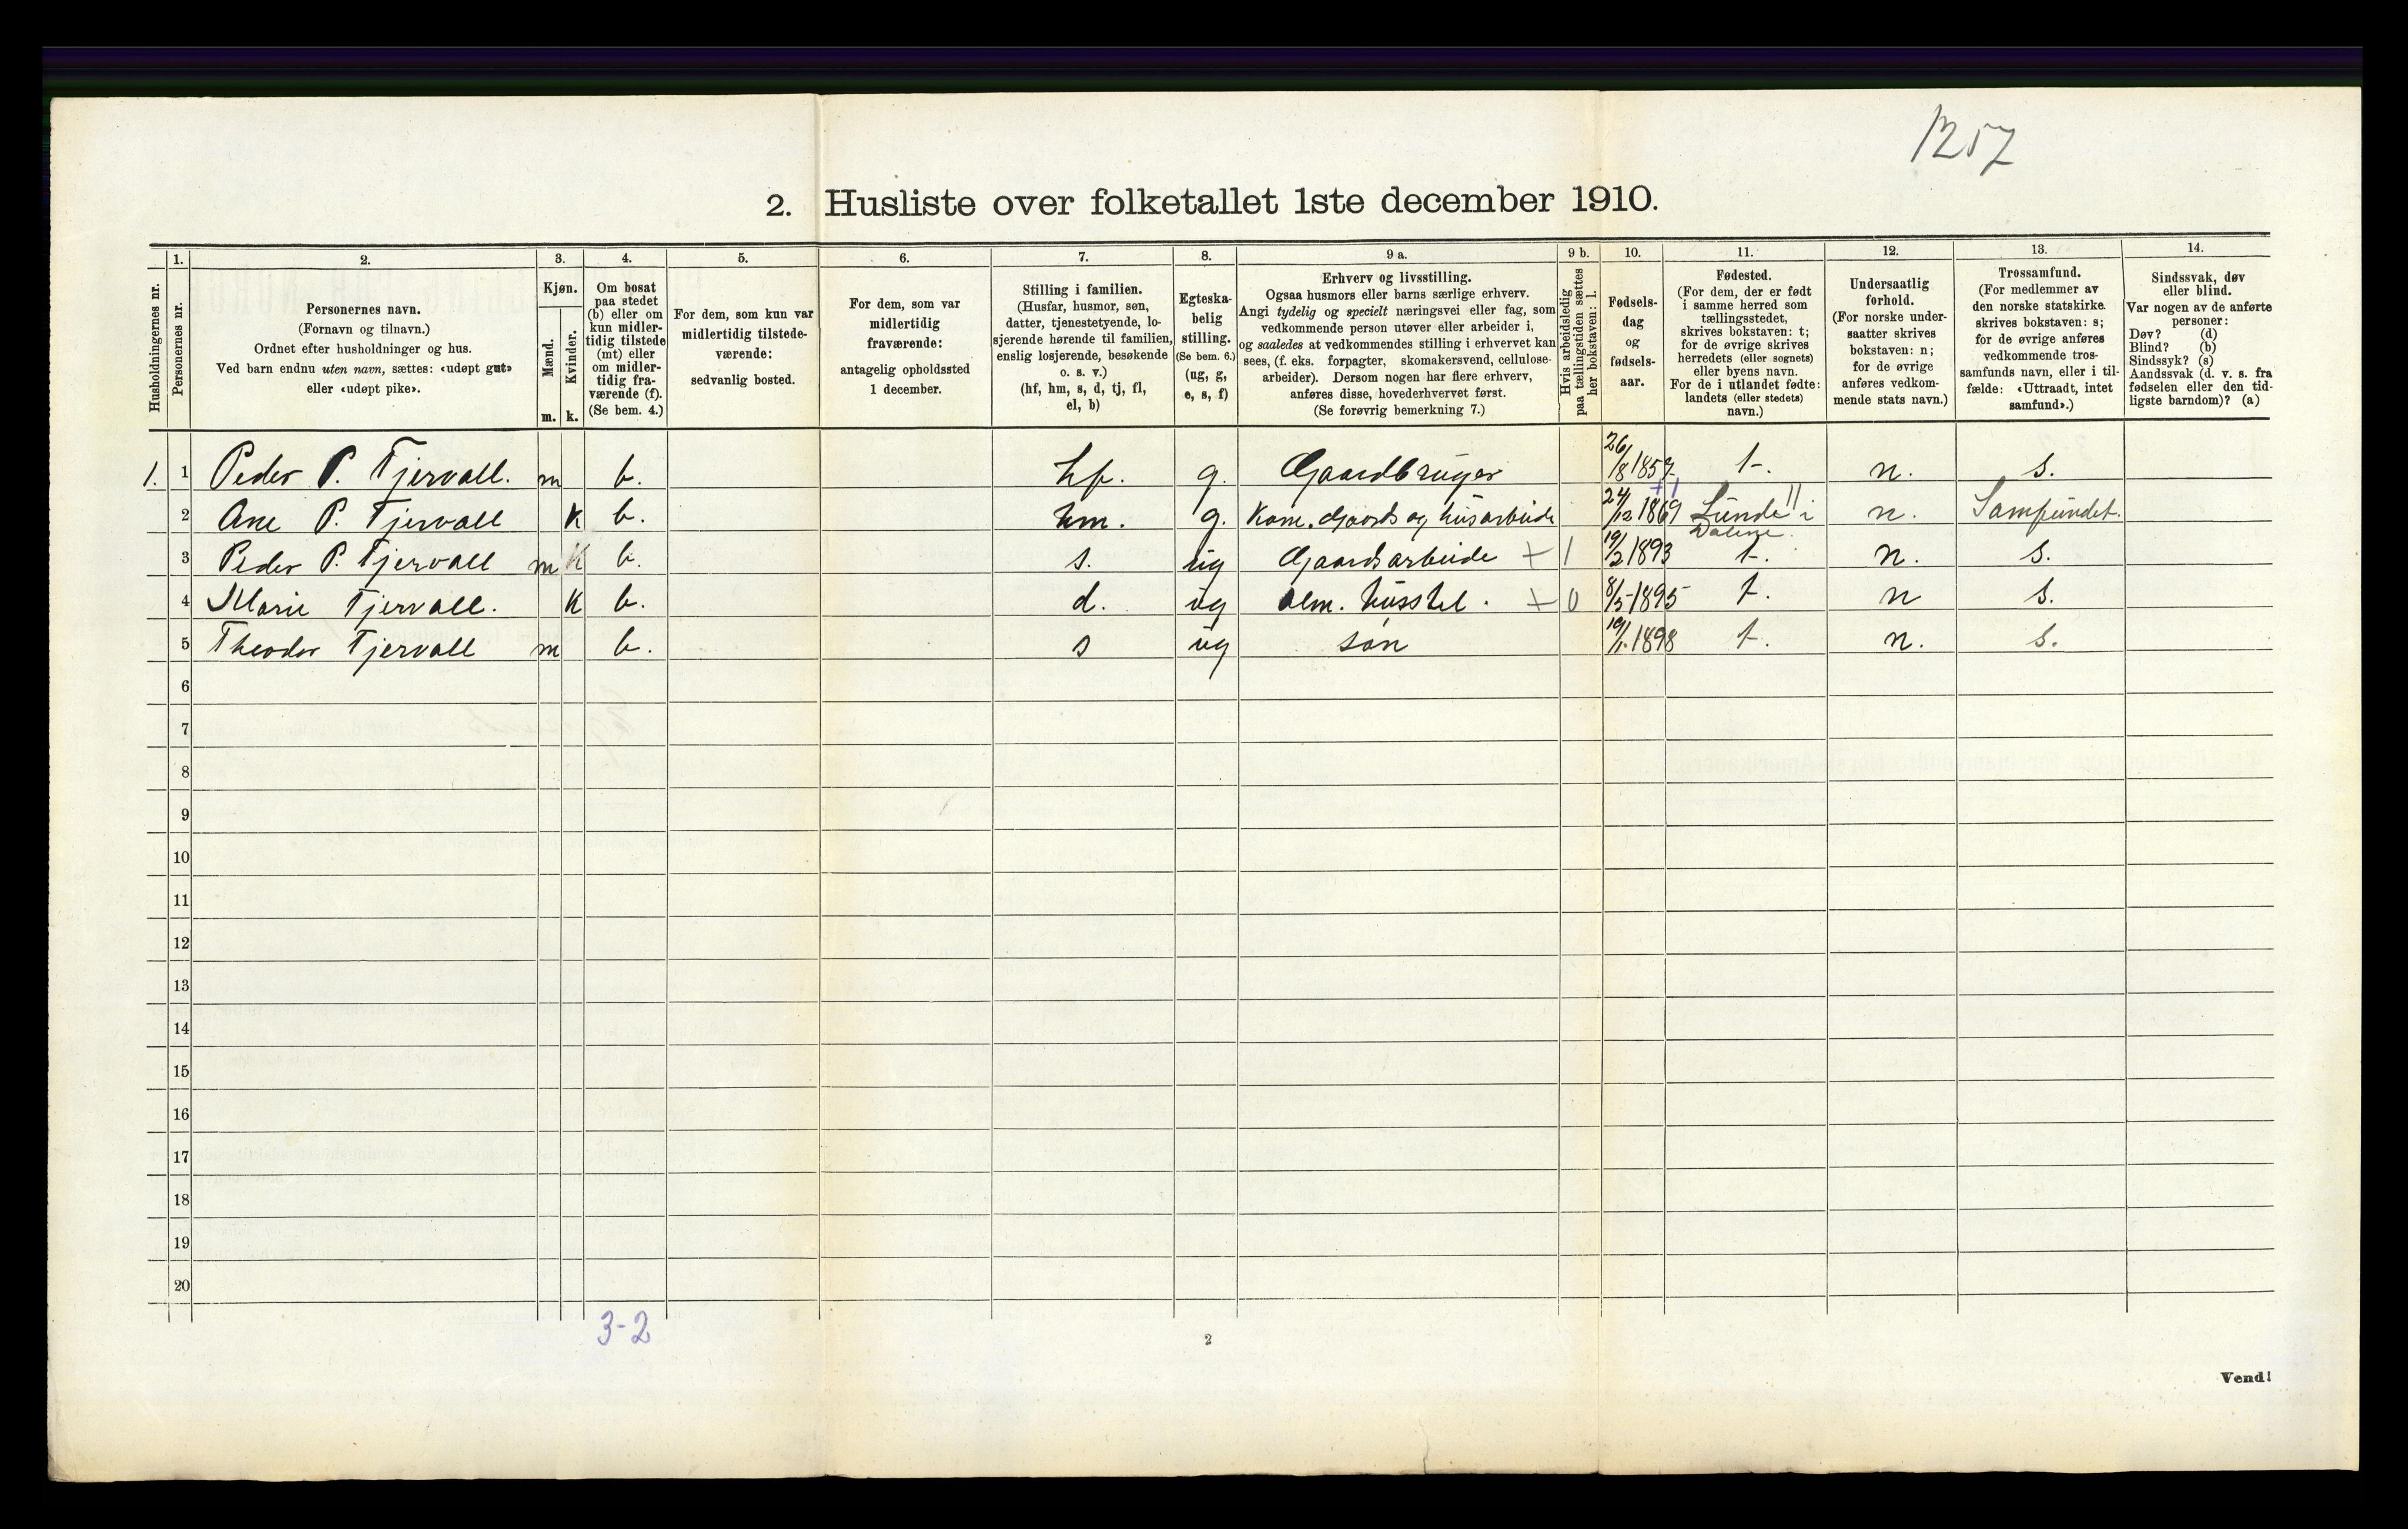 1257
2. Husliste over folketallet 1ste december 1910.
Husholdningernes nr.
1.
Personernes nr.
2.
Personernes navn.
(Fornavn og tilnavn.)
Ordnet efter husholdninger og hus.
Ved barn endnu uten navn, sættes: «udøpt gut»
eller «udøpt pike».
3.
Kjøn.
Mænd.
Kvinder.
m. k.
4.
Om bosat
paa stedet
(b) eller om
kun midler-
tidig tilstede
(mt) eller
om midler-
tidig fra-
værende (f).
(Se bem. 4.)
5.
For dem, som kun var
midlertidig tilstede-
værende:
sedvanlig bosted.
6.
For dem, som var
midlertidig
fraværende:
antagelig opholdssted
1 december.
7.
Stilling i familien.
(Husfar, husmor, søn,
datter, tjenestetyende, lo-
sjerende hørende til familien,
enslig losjerende, besøkende
o. s. v.)
(hf, hm, s, d, tj, fl,
el, b)
8.
Egteska-
belig
stilling.
(Se bem. 6.)
(ug, g,
e, s, f)
9 a.
Erhverv og livsstilling.
Ogsaa husmors eller barns særlige erhverv.
Angi tydelig og specielt næringsvei eller fag, som
vedkommende person utøver eller arbeider i,
og saaledes at vedkommendes stilling i erhvervet kan
sees, (f. eks. forpagter, skomakersvend, cellulose-
arbeider). Dersom nogen har flere erhverv,
anføres disse, hovederhvervet først.
(Se forøvrig bemerkning 7.)
9 b.
Hvis arbeidsledig
paa tællingstiden sættes
her bokstaven: l.
10.
Fødsels-
dag
og
fødsels-
aar.
11.
Fødested.
(For dem, der er født
i samme herred som
tællingsstedet,
skrives bokstaven: t;
for de øvrige skrives
herredets (eller sognets)
eller byens navn.
For de i utlandet fødte:
landets (eller stedets)
navn.)
12.
Undersaatlig
forhold.
(For norske under-
saatter skrives
bokstaven: n;
for de øvrige
anføres vedkom-
mende stats navn.)
13.
Trossamfund.
(For medlemmer av
den norske statskirke
skrives bokstaven: s;
for de øvrige anføres
vedkommende tros-
samfunds navn, eller i til-
fælde: «Uttraadt, intet
samfund».)
14.
Sindssvak, døv
eller blind.
Var nogen av de anførte
personer:
Døv? (d)
Blind? (b)
Sindssyk? (s)
Aandssvak (d. v. s. fra
fødselen eller den tid-
ligste barndom)? (a)
1. 1 Peder P. Tjervall. m b. hf. g. Gaardbruger 26/8 1857 t. n. s.
2 Ane P. Tjervall K b. hm. g. Kone. Gaards og husarbeide 24/12 1869 Lunde i Dalene. n. Samfundet.
3 Peder P. Tjervall m K b. s. ug Gaardsarbeide + 1 19/2 1893 t. n. s.
4 Marie Tjervall. K b. d. ug alm. husstel. + 0 8/5 1895 t. n s.
5 Theodor Tjervall m b. s ug søn 19/1 1898 t. n. s.
6
7
8
9
10
11
12
13
14
15
16
17
18
19
20
3-2
2
Vend!